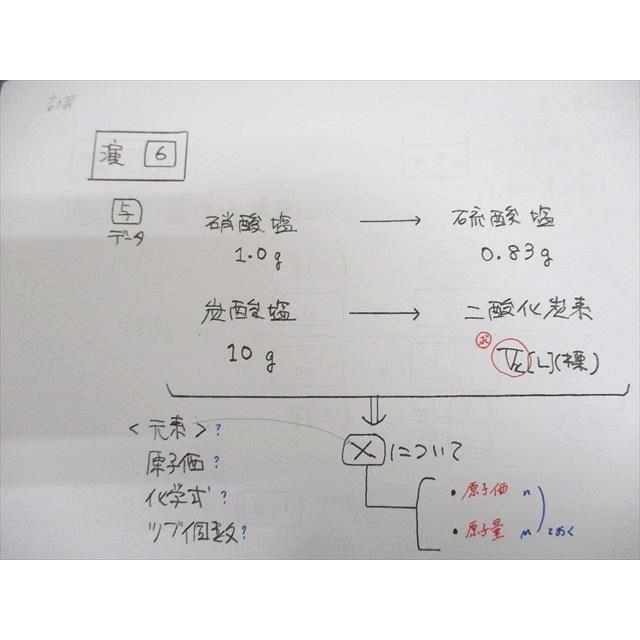 計算
演 6
与 硝酸塩 → 硫酸塩
データ 1.0g 0.83g
炭酸塩 → 二酸化炭素
10g 求 Vx [L](標)
<元素>? Xについて
原子価? ・原子価 n
化学式? ・原子量 M とおく
ツブ個数?